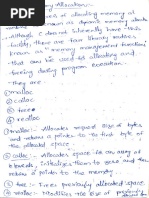 Allocation:-
of allocating memory at
known as dynamic memory alloca
- Although C does not inherently have this
facility, there are four library routines
known as "memory management functions"
that can be used for allocating and
freeing during program execution.
they are
1) malloc
2) calloc
3) free
4) realloc
size of bytes
and returns a pointer to the first byte
of the allocated space.
2) calloc:- Allocates space for an array of
elements, initializes them to zero and then
returns a pointer to the memory.
3) free:- Frees previously allocated space.
4) realloc:- Modifies the size of previously